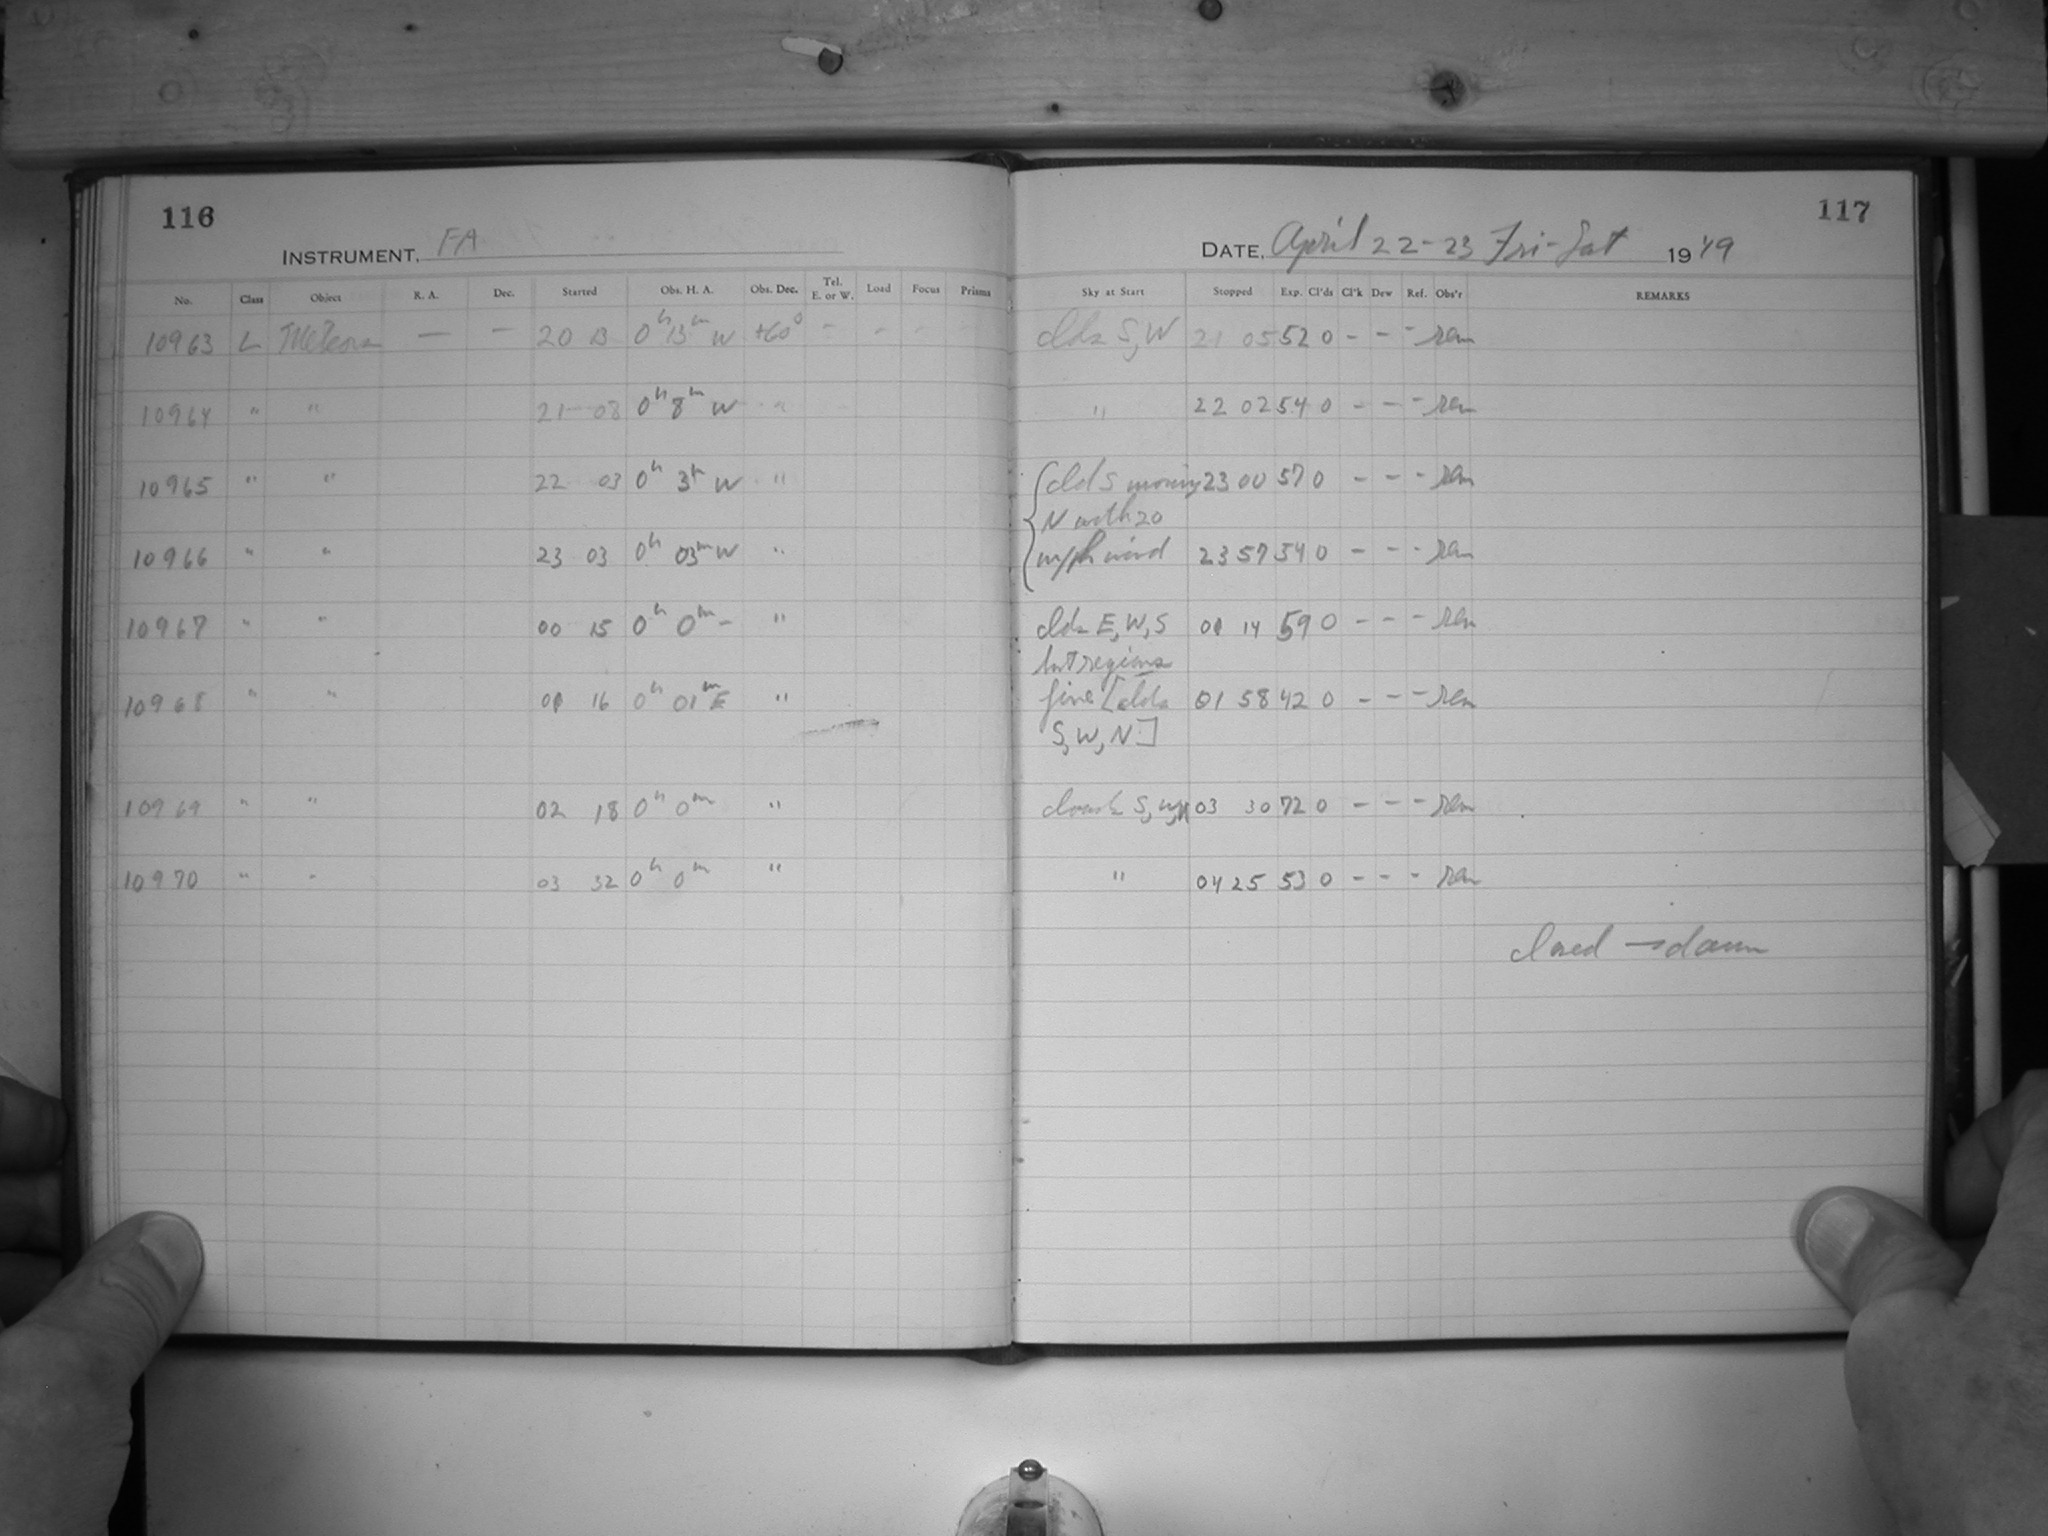 116
INSTRUMENT, FA
No. Class Object R. A. Dec. Started Obs. H. A. Obs. Dec. Tel. E. or W. Load Focus Prisms
10963 L Meteors — — 20 13 0h 13m W +60° - - - -
10964 " " 21 08 0h 8m W "
10965 " " 22 03 0h 3m W "
10966 " " 23 03 0h 03m W "
10967 " " 00 15 0h 0m - "
10968 " " 01 16 0h 01m E "
10969 " " 02 18 0h 0m "
10970 " " 03 32 0h 0m "
117
DATE, April 22-23 Fri-Sat 1949
Sky at Start Stopped Exp. Cl'ds Cl'k Dew Ref. Obs'r REMARKS
clds S, W 21 05 52 0 - - - rem
" 22 02 54 0 - - - rem
clds moving 23 00 57 0 - - - rem
N with 20
mph wind 23 57 54 0 - - - rem
clds E, W, S 01 14 59 0 - - - rem
but regions
fine [clds 01 58 42 0 - - - rem
S, W, N]
clouds S, W, N 03 30 72 0 - - - rem
" 04 25 53 0 - - - rem
closed → dawn